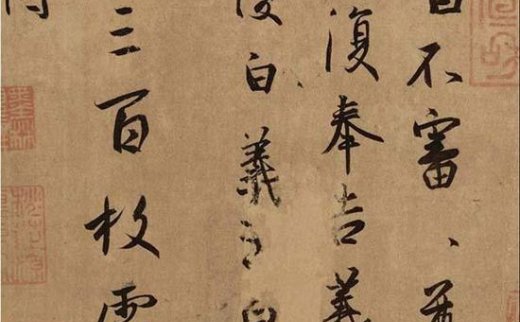 白不審、尊
復奉告羲
復白羲之白
三百枚霜
得